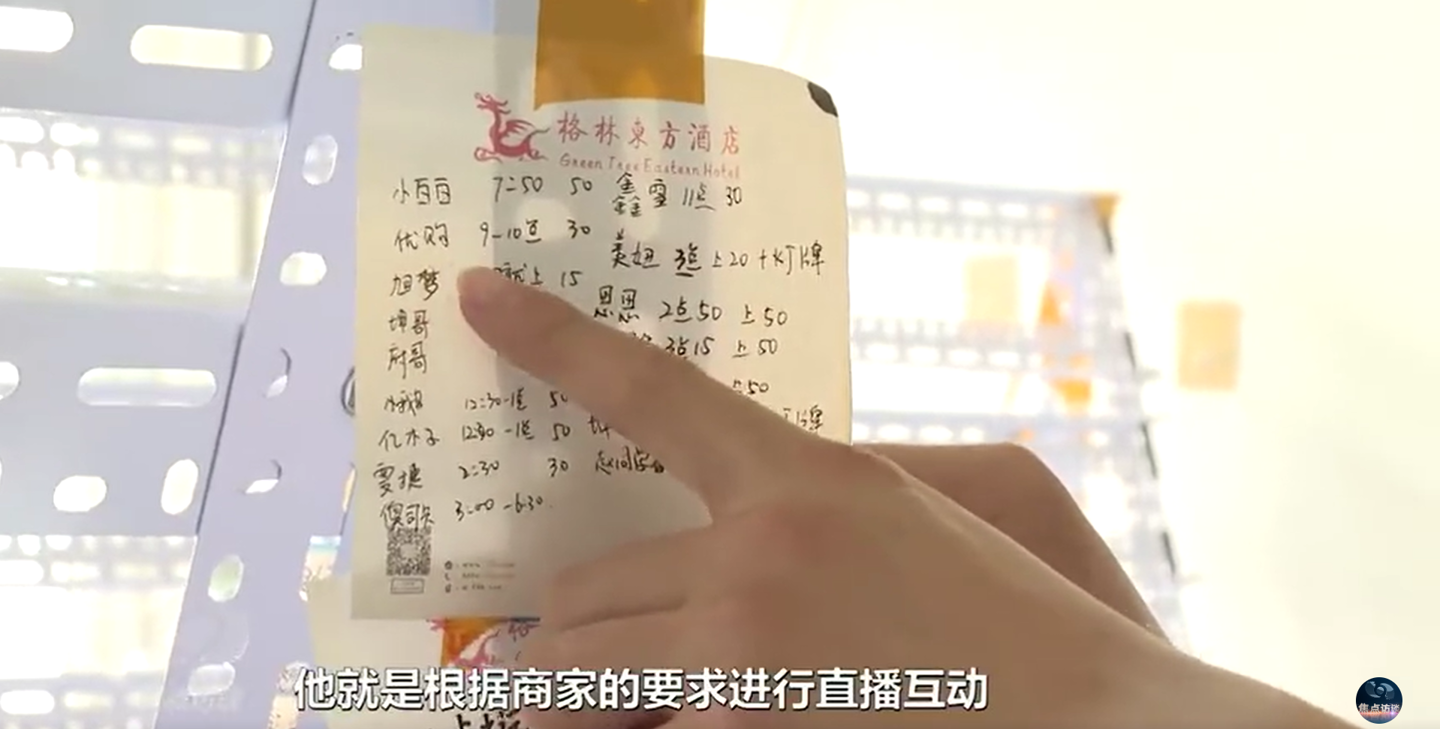 格林東方酒店
GreenTree Eastern Hotel
小百百 7:50 50
鑫雪 11点 30
优购 9-10点 30
美妞 3点 上20+灯牌
旭梦 就上 15
恩恩 2点50 上50
坤哥
3点15 上50
府哥
50
12:30-1点 50
灯牌
亿木子 12:30-1点 50
雯捷 2:30 30
3:00-6:30
他就是根据商家的要求进行直播互动
焦点访谈